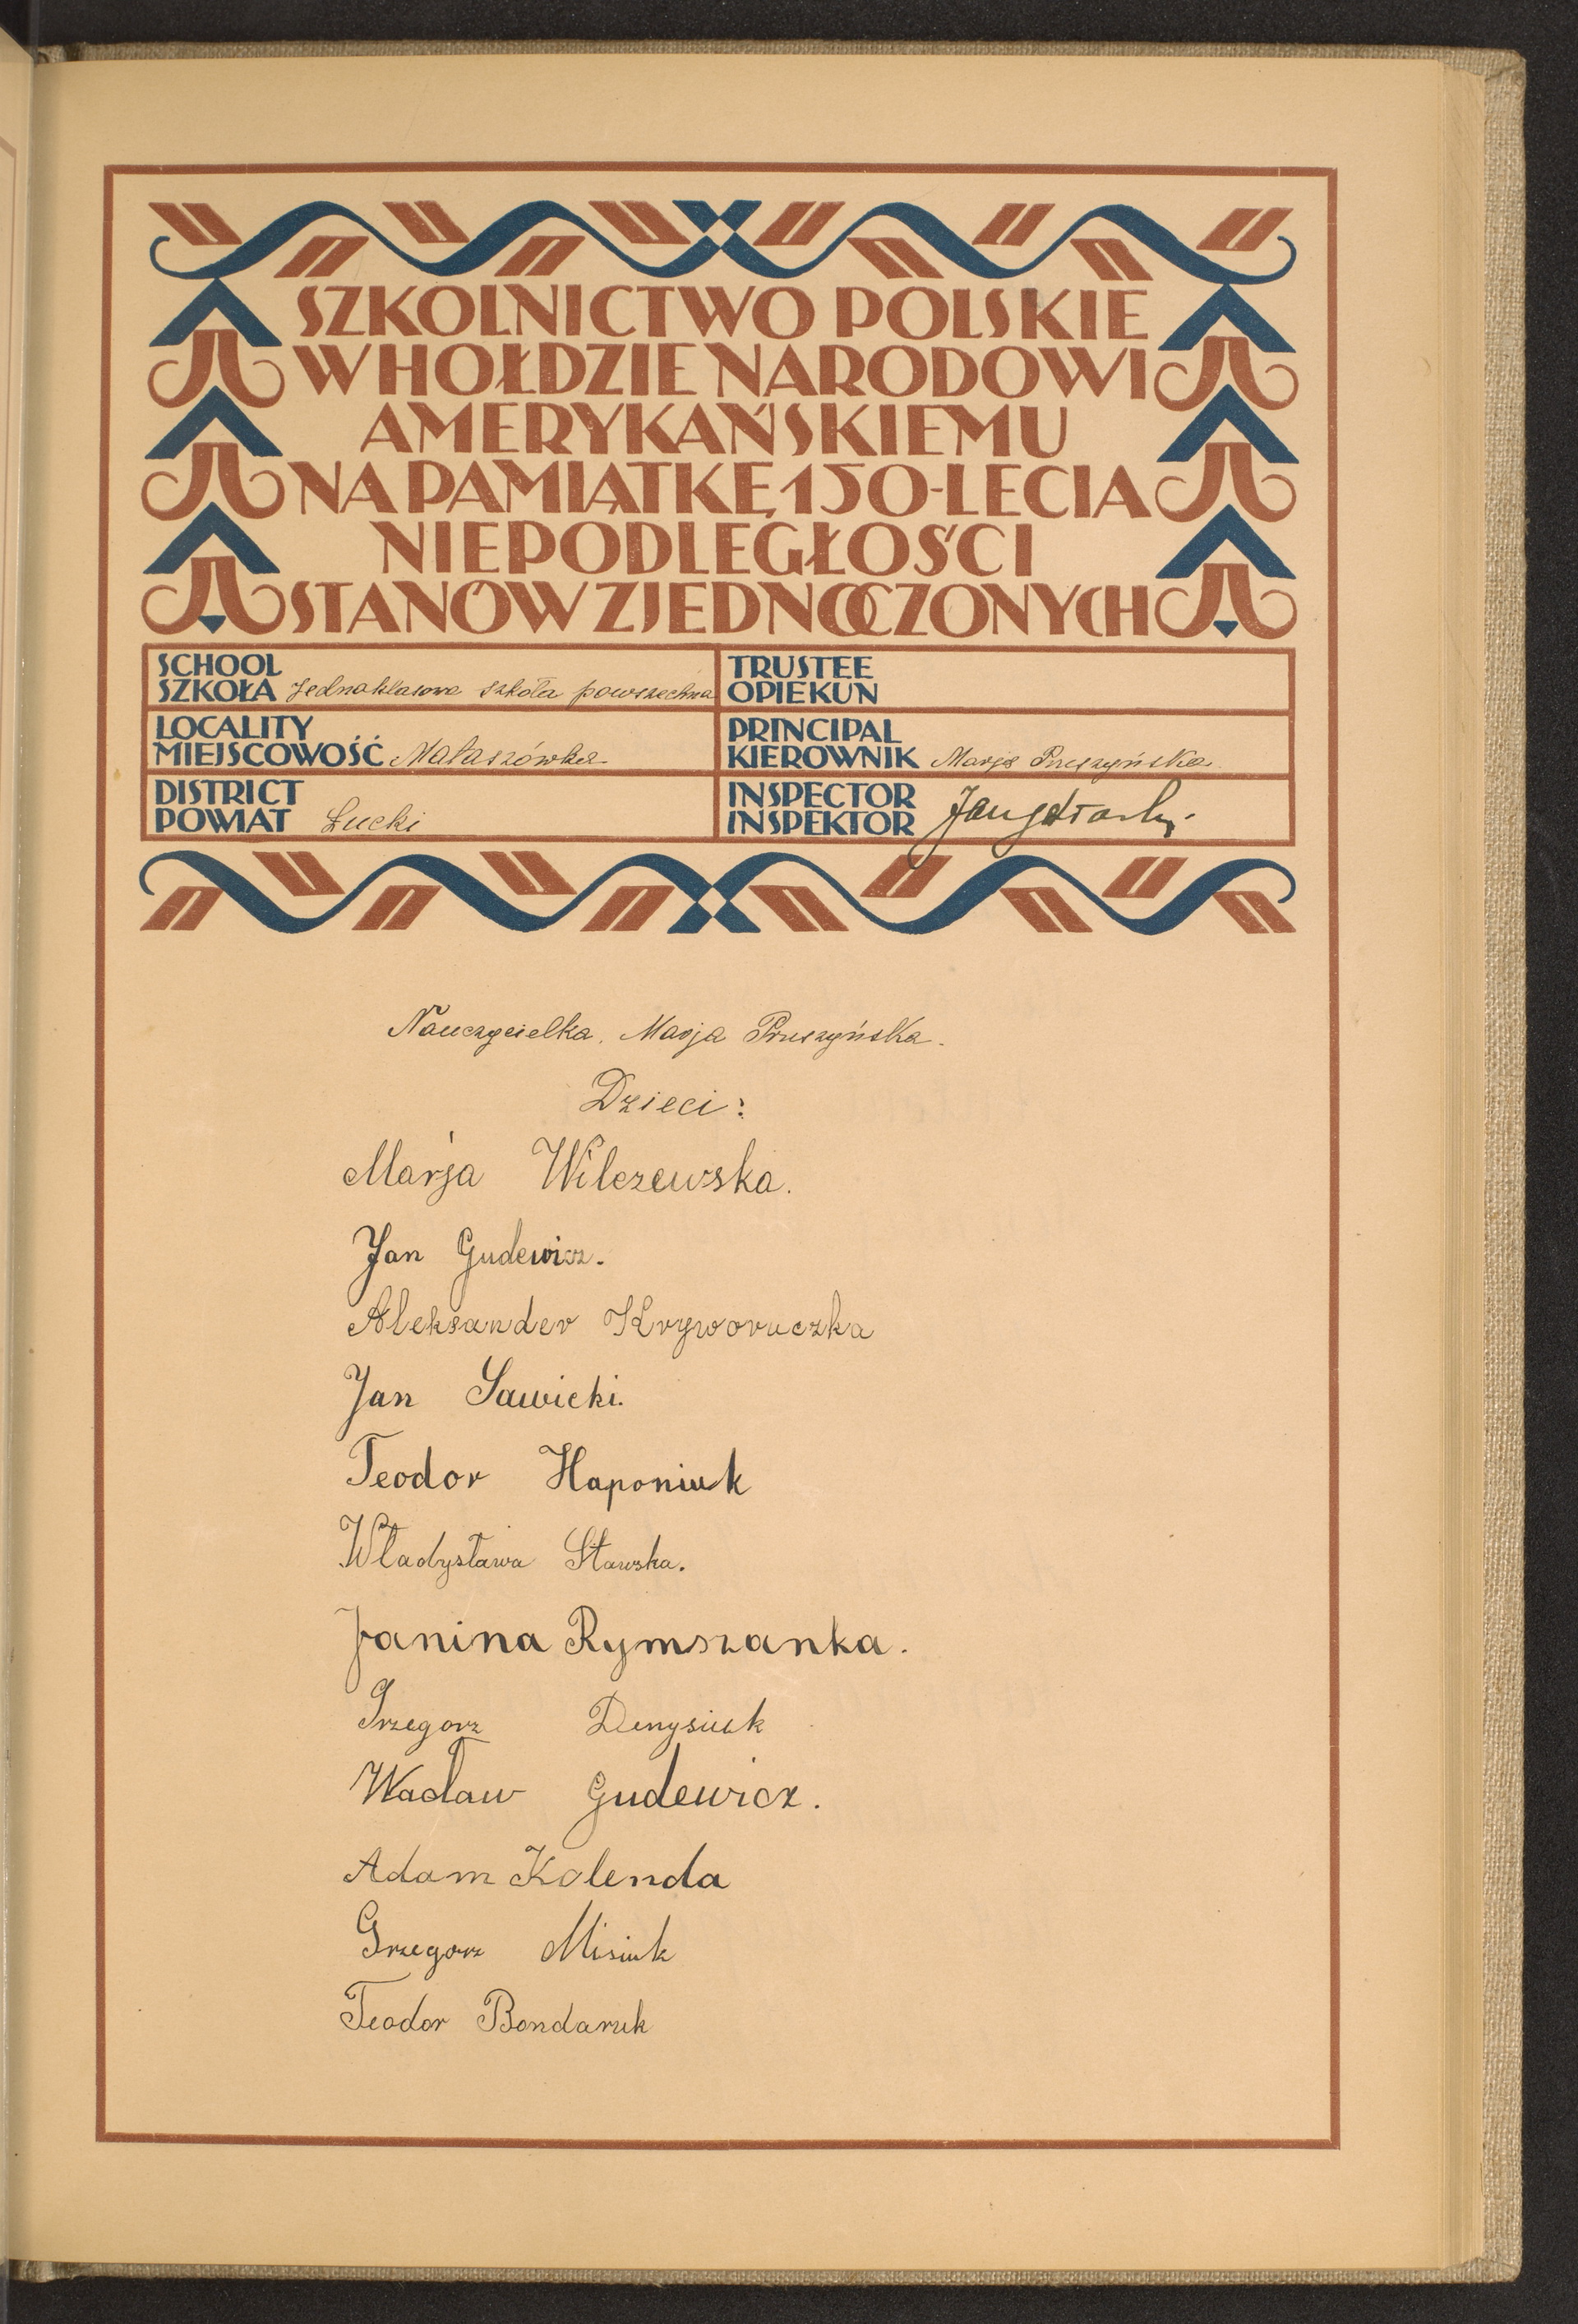 SZKOLNICTWO POLSKIE
W HOŁDZIE NARODOWI
AMERYKAŃSKIEMU
NA PAMIĄTKĘ 150-LECIA
NIEPODLEGŁOŚCI
STANÓW ZJEDNOCZONYCH
SCHOOL
SZKOŁA Jednoklasowa szkoła powszechna
TRUSTEE
OPIEKUN
LOCALITY
MIEJSCOWOŚĆ Małaszówka
PRINCIPAL
KIEROWNIK Marja Pruszyńska
DISTRICT
POWIAT Łucki
INSPECTOR
INSPEKTOR
Nauczycielka, Marja Pruszyńska.
Dzieci:
Marja Wilczewska.
Jan Gudewicz.
Aleksander Kryworuczka
Jan Sawicki.
Teodor Haponiuk
Władysława Stawska.
Janina Rymszanka.
Grzegorz Denysiuk
Wacław Gudewicz.
Adam Kolenda
Grzegorz Misiuk
Teodor Bondaruk